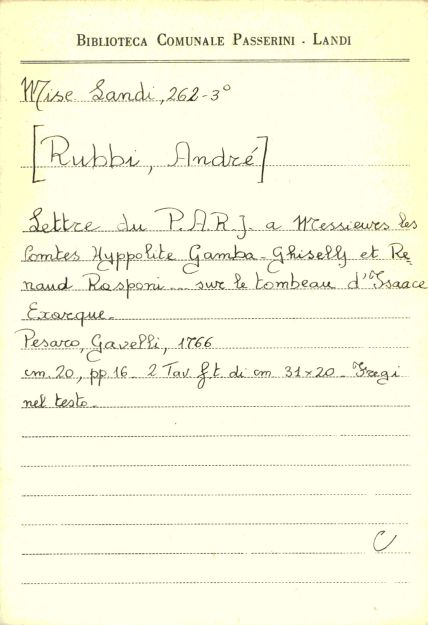 BIBLIOTECA COMUNALE PASSERINI - LANDI
Misc Landi, 262-3°
[Rubbi, André]
Lettre du P.A.R.J. a Messieurs les
Comtes Hyppolite Gamba-Ghiselly et Re-
naud Rasponi... sur le tombeau d'Isaace
Exarque.
Pesaro, Gavelli, 1766
cm. 20, pp. 16 - 2 Tav. f.t. di cm 31×20 - Fregi
nel testo.
C